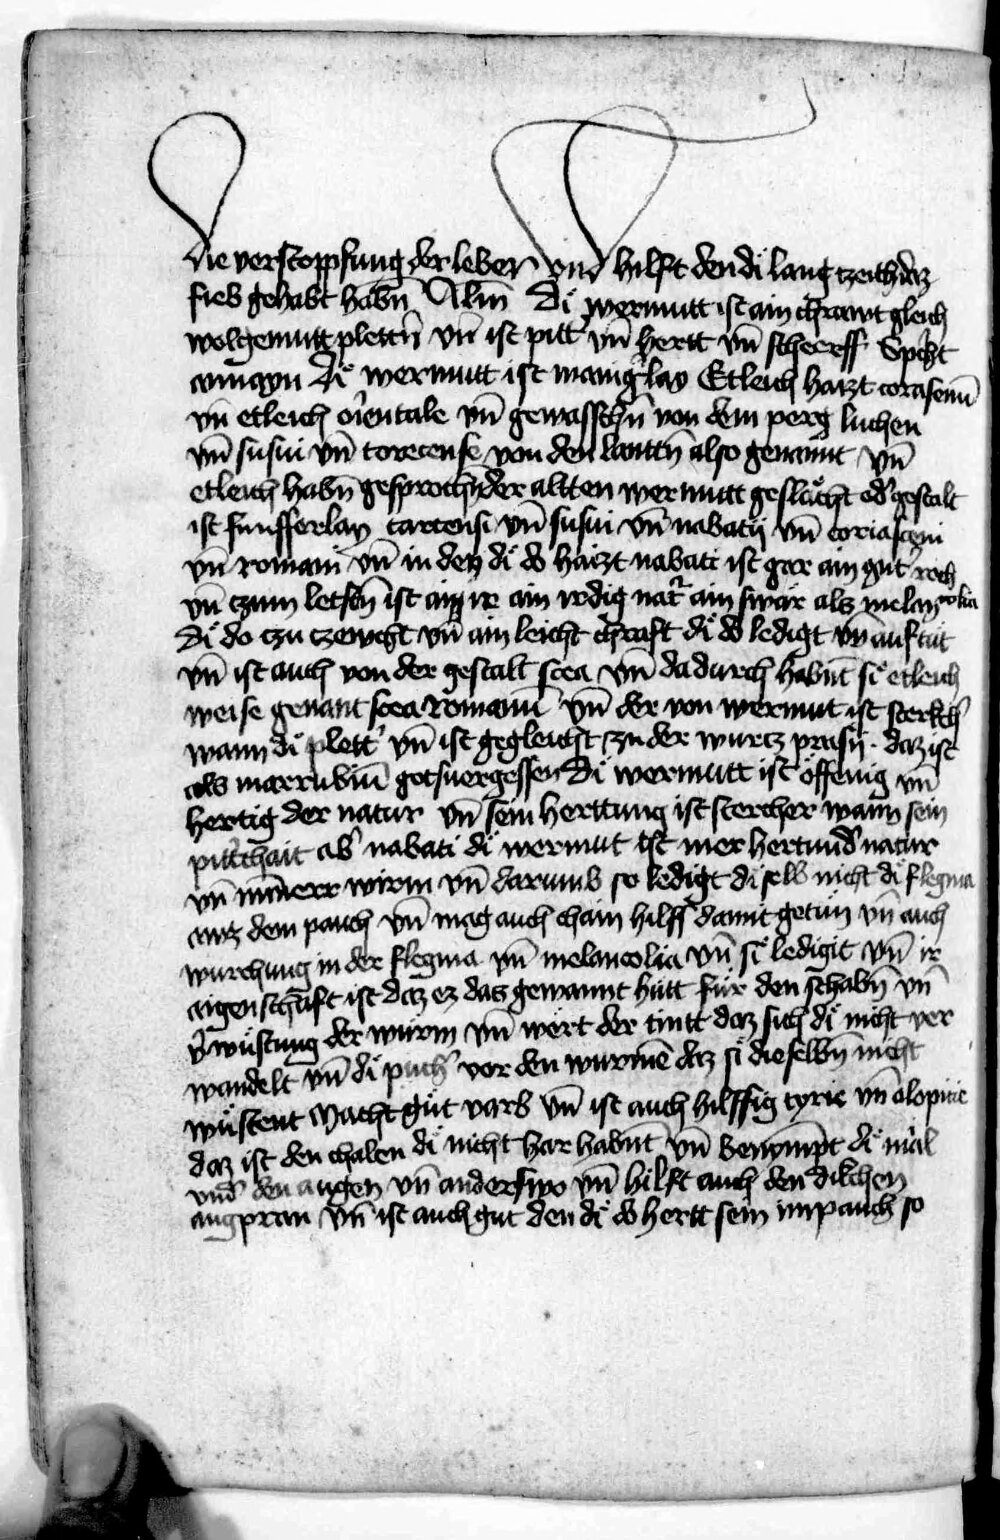 die verstoppfung der leber vnd hilft den dÿ lang tzeit daz
fieb gehabt habn̄ Alm̄ Dÿ wermutt ist ain chrawt gleich
wolgemutt plettn̄ vn̄ ist pitt' vn̄ hertt vn̄ scherff Spch̄t
Dÿ wermutt ist manig'lay Etleich haizt corasenū
vn̄ etleich or̄ientale vn̄ gewasschn̄ von dem perg luchen
vn̄ susui vn̄ torecense von den lanttn̄ also genannt vn̄
etleich habn̄ gesprochn̄ der alltten wermutt geslächt od' gestalt
ist funfferlay tartensi vn̄ susui vn̄ nabatij vn̄ coriasceni
vn̄ romani vn̄ in den dÿ do haizt nabati ist gar ain gut' roch
vn̄ czum letstn̄ ist ain ir ain irdig nat'r ain swär als melancolia
Dÿ do czu czewcht vn̄ ain leicht chraft dÿ do ledigt vn̄ auftut
vn̄ ist auch von der gestalt scea vn̄ da durch habnt sÿ etleich
weise genant scea romanū vn̄ der von wermut ist sterkch'
wann dÿ plett' vn̄ ist gegleicht zu der wurcz prasij . daz ist
als marrubiū gotsuergessen Dÿ wermutt ist öffenig vn̄
hertig der natur vn̄ sein herttung ist stercher wann sein
pitt'chait ab' nabati dÿ wermut ist mer hertund' natur
vn̄ mīnerr wirm vn̄ darumb so ledigt dÿselb nicht dÿ flegma
awz dem pauch vn̄ mag auch chain hilff damit getun vn̄ auch
wurchung in der flegma vn̄ melancolia vn̄ sÿ ledigit vn̄ ir
aigenschafft ist daz ez das gewannt hütt für den schabn̄ vn̄
v'wüstung der würm vn̄ wert der tintt daz sich dÿ nicht ver
wandelt vn̄ dÿ puch' vor den wurmē daz sÿ dieselbn̄ nicht
wüstent Macht güt varb vn̄ ist auch hilffig tyrie vn̄ alopicie
daz ist den chalen dÿ nicht har habnt vn̄ benympt dÿ māl
vnd' den augen vn̄ anderswo vn̄ hilft auch den dikchen
augpran vn̄ ist auch gut den dÿ do hertt sein im pauch so